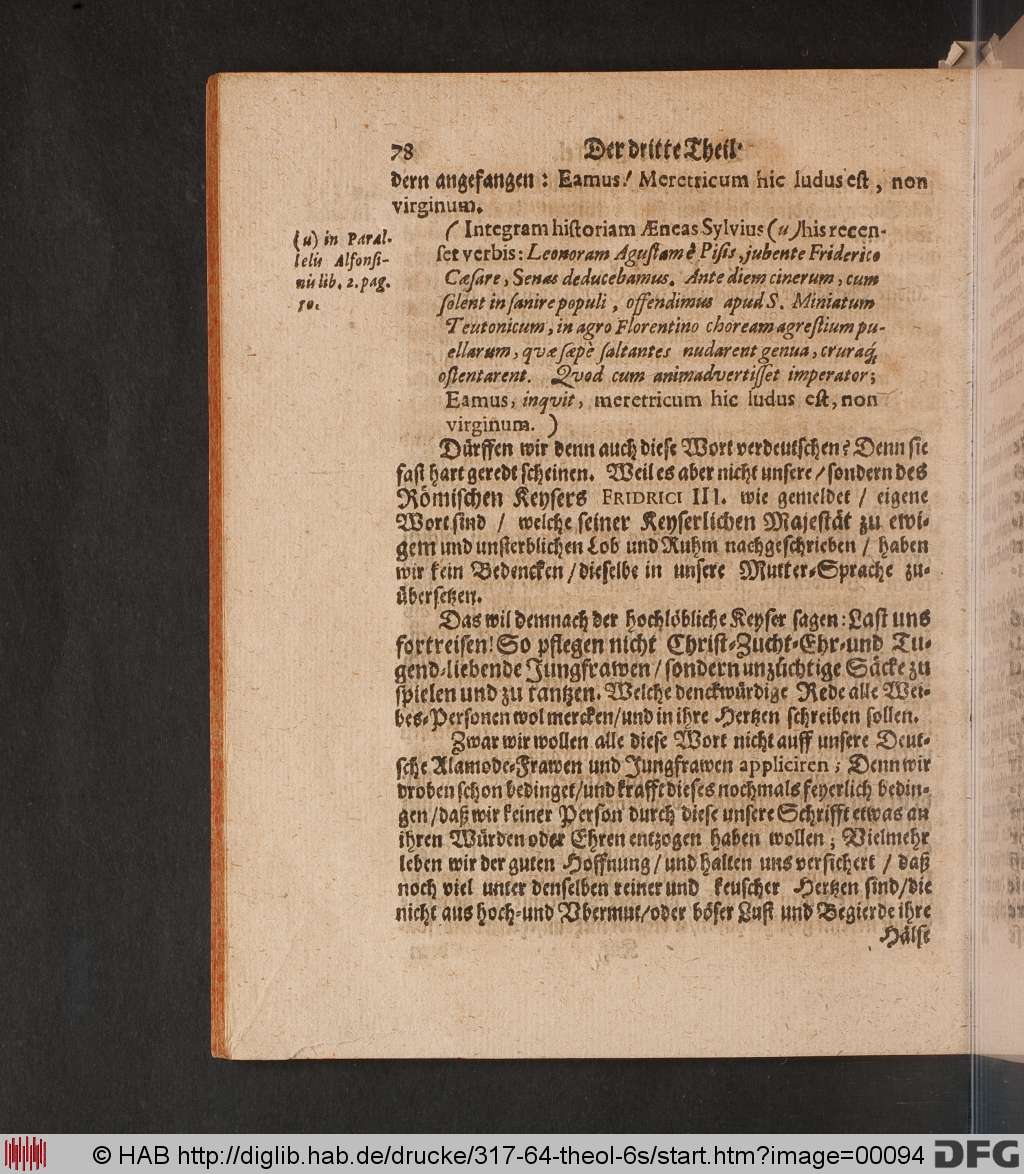 78 Der dritte Theil.
dern angefangen: Eamus! Meretricum hic ludus est, non
virginum.
(Integram historiam Æneas Sylvius (u) his recen-
set verbis: Leonoram Agustam è Pisis, jubente Friderico
Cæsare, Senas deducebamus. Ante diem cinerum, cum
solent insanire populi, offendimus apud S. Miniatum
Teutonicum, in agro Florentino choream agrestium pu-
ellarum, quæ sæpè saltantes nudarent genua, cruraq́;
ostentarent. Quod cum animadvertisset imperator;
Eamus, inqvit, meretricum hic ludus est, non
virginum.)
(u) in Paral-
lelis Alfonsi-
nis lib. 2. pag.
50.
Dürffen wir denn auch diese Wort verdeutschen? Denn sie
fast hart geredt scheinen. Weil es aber nicht unsere / sondern des
Römischen Keysers FRIDRICI III. wie gemeldet / eigene
Wort sind / welche seiner Keyserlichen Majestät zu ewi-
gem und unsterblichen Lob und Ruhm nachgeschrieben / haben
wir kein Bedencken / dieselbe in unsere Mutter-Sprache zu-
übersetzen.
Das wil demnach der hochlöbliche Keyser sagen: Last uns
fortreisen! So pflegen nicht Christ-Zucht-Ehr-und Tu-
gend-liebende Jungfrawen / sondern unzüchtige Säcke zu
spielen und zu tantzen. Welche denckwürdige Rede alle Wei-
bes-Personen wol mercken/und in ihre Hertzen schreiben sollen.
Zwar wir wollen alle diese Wort nicht auff unsere Deut-
sche Alamode-Frawen und Jungfrawen appliciren; Denn wir
droben schon bedinget/und krafft dieses nochmals feyerlich bedin-
gen/daß wir keiner Person durch diese unsere Schrifft etwas an
ihren Würden oder Ehren entzogen haben wollen; Vielmehr
leben wir der guten Hoffnung / und halten uns versichert / daß
noch viel unter denselben reiner und keuscher Hertzen sind/die
nicht aus hoch-und Vbermut/oder böser Lust und Begierde ihre
Hälse
© HAB http://diglib.hab.de/drucke/317-64-theol-6s/start.htm?image=00094 DFG